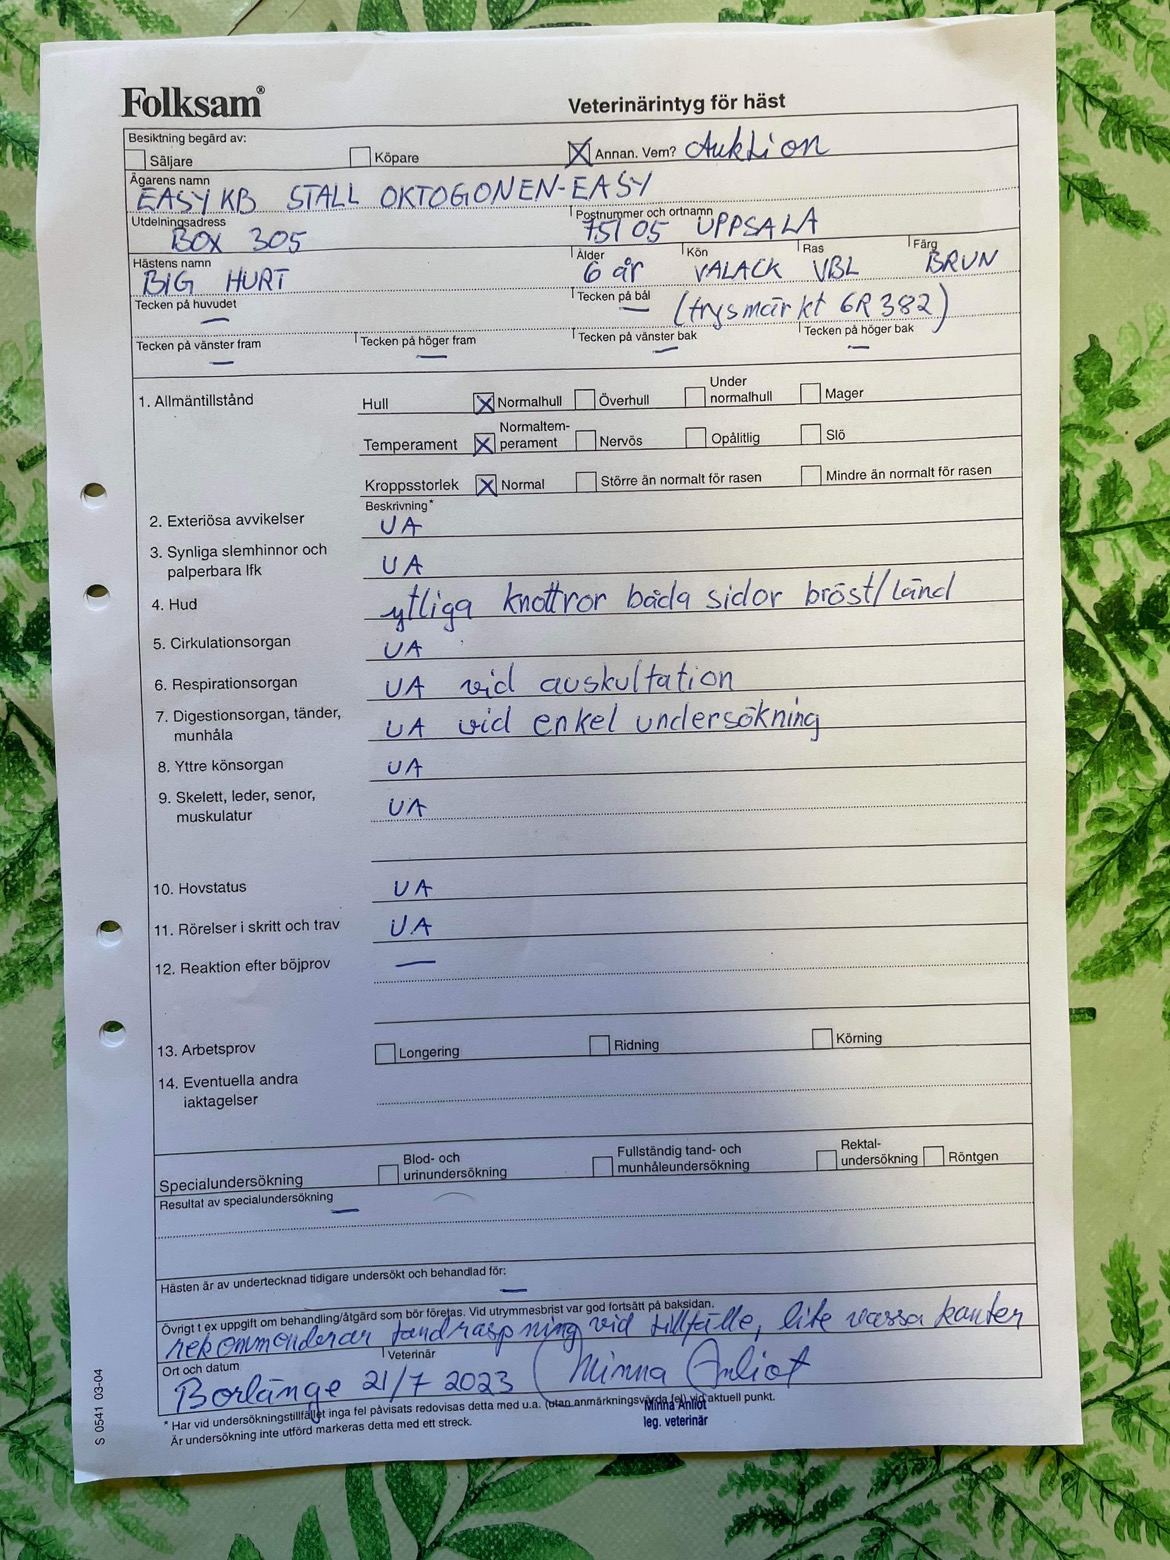 Folksam®
Veterinärintyg för häst
Besiktning begärd av:
Säljare Köpare Annan. Vem? Auktion
Ägarens namn
EASY KB STALL OKTOGONEN-EASY
Utdelningsadress Postnummer och ortnamn
BOX 305 75105 UPPSALA
Hästens namn Ålder Kön Ras Färg
BIG HURT 6 år VALACK VBL BRUN
Tecken på huvudet Tecken på bål
— — (frysmärkt GR382)
Tecken på vänster fram Tecken på höger fram Tecken på vänster bak Tecken på höger bak
— — — —
1. Allmäntillstånd
Hull Normalhull Överhull Under normalhull Mager
Temperament Normaltem-perament Nervös Opålitlig Slö
Kroppsstorlek Normal Större än normalt för rasen Mindre än normalt för rasen
Beskrivning*
2. Exteriösa avvikelser UA
3. Synliga slemhinnor och
palperbara lfk UA
4. Hud ytliga knottror båda sidor bröst/länd
5. Cirkulationsorgan UA
6. Respirationsorgan UA vid auskultation
7. Digestionsorgan, tänder,
munhåla UA vid enkel undersökning
8. Yttre könsorgan UA
9. Skelett, leder, senor,
muskulatur UA
10. Hovstatus UA
11. Rörelser i skritt och trav UA
12. Reaktion efter böjprov —
13. Arbetsprov Longering Ridning Körning
14. Eventuella andra
iaktagelser
Specialundersökning Blod- och urinundersökning Fullständig tand- och munhåleundersökning Rektal-undersökning Röntgen
Resultat av specialundersökning —
Hästen är av undertecknad tidigare undersökt och behandlad för: —
Övrigt t ex uppgift om behandling/åtgärd som bör företas. Vid utrymmesbrist var god fortsätt på baksidan.
rekommenderar tandraspning vid tillfälle, lite vassa kanter
Ort och datum Veterinär
Borlänge 21/7 2023 Minna Anliot
* Har vid undersökningstillfället inga fel påvisats redovisas detta med u.a. (utan anmärkningsvärda fel) vid aktuell punkt.
Är undersökning inte utförd markeras detta med ett streck.
Minna Anliot
leg. veterinär
S 0541 03-04